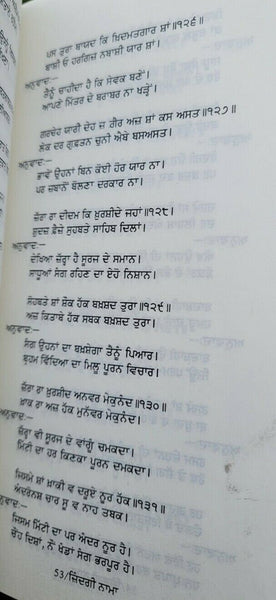 ਪਸ ਤੁਰਾ ਬਾਯਦ ਕਿ ਖ਼ਿਦਮਤਗਾਰ ਸ਼ਾਂ॥੧੨੬॥
ਬਾਸ਼ੀ ਓ ਹਰਗਿਜ਼ ਨਬਾਸ਼ੀ ਯਾਰ ਸ਼ਾਂ।
ਅਨੁਵਾਦ:—
ਤੈਨੂੰ ਚਾਹੀਦਾ ਹੈ ਕਿ ਸੇਵਕ ਬਣੇਂ।
ਆਪਣੇ ਮਿੱਤਰ ਦੇ ਬਰਾਬਰ ਨਾ ਖੜ੍ਹੇਂ।
ਗਰਚੇਹ ਯਾਰੀ ਦੇਹ ਜ਼ ਗ਼ੈਰ ਅਜ਼ ਸ਼ਾਂ ਕਸ ਅਸਤ॥੧੨੭॥
ਲੇਕ ਦਰ ਗੁਫ਼ਤਨ ਚੁਨੀ ਐਬੇ ਬਸਅਸਤ।
ਅਨੁਵਾਦ:—
ਭਾਵੇਂ ਉਹਨਾਂ ਬਿਨ ਕੋਈ ਹੋਰ ਯਾਰ ਨਾ।
ਪਰ ਜ਼ਬਾਨੋਂ ਬੋਲਣਾ ਦਰਕਾਰ ਨਾ।
ਜ਼ੱਰਾ ਰਾ ਦੀਦਮ ਕਿ ਖ਼ੁਰਸ਼ੀਦੇ ਜਹਾਂ॥੧੨੮॥
ਸ਼ੁਦਜ਼ ਫ਼ੈਜ਼ੇ ਸੁਹਬਤੇ ਸਾਹਿਬ ਦਿਲਾਂ।
ਅਨੁਵਾਦ:—
ਦੇਖਿਆ ਜ਼ੱਰ੍ਹਾ ਹੈ ਸੂਰਜ ਦੇ ਸਮਾਨ।
ਸਾਧੂਆਂ ਸੰਗ ਰਹਿਣ ਦਾ ਏਹੋ ਨਿਸ਼ਾਨ।
ਸੋਹਬਤੇ ਸ਼ਾਂ ਸ਼ੌਕ ਹੱਕ ਬਖ਼ਸ਼ਦ ਤੁਰਾ॥੧੨੯॥
ਅਜ਼ ਕਿਤਾਬੇ ਹੱਕ ਸਬਕ ਬਖ਼ਸ਼ਦ ਤੁਰਾ।
ਅਨੁਵਾਦ:—
ਸੰਗ ਉਹਨਾਂ ਦਾ ਬਖ਼ਸ਼ੇਗਾ ਤੈਨੂੰ ਪਿਆਰ।
ਬ੍ਰਹਮ ਵਿੱਦਿਆ ਦਾ ਮਿਲੂ ਪੂਰਨ ਵਿਚਾਰ।
ਜ਼ੱਰਾ ਰਾ ਖ਼ੁਰਸ਼ੀਦ ਅਨਵਰ ਮੇਕੁਨੇਦ॥੧੩੦॥
ਖ਼ਾਕ ਰਾ ਅਜ਼ ਹੱਕ ਮੁਨੱਵਰ ਮੇਕੁਨੇਦ।
ਅਨੁਵਾਦ:—
ਜ਼ੱਰਾ ਵੀ ਸੂਰਜ ਦੇ ਵਾਂਗੂੰ ਚਮਕਦਾ।
ਮਿੱਟੀ ਦਾ ਹਰ ਕਿਣਕਾ ਪੂਰਨ ਦਮਕਦਾ।
ਜਿਸਮੇ ਸ਼ਾਂ ਖ਼ਾਕੀ ਵ ਦਰੂਏ ਨੂਰ ਹੱਕ॥੧੩੧॥
ਅੰਦਰਨਸ਼ ਚਾਰ ਸੂ ਵ ਨਾਹ ਤਬਕ।
ਅਨੁਵਾਦ:—
ਜਿਸਮ ਮਿੱਟੀ ਦਾ ਪਰ ਅੰਦਰ ਨੂਰ ਹੈ।
ਚੌਹ ਦਿਸ਼ਾਂ, ਨੌਂ ਖੰਡਾਂ ਸੰਗ ਭਰਪੂਰ ਹੈ।
53/ਜ਼ਿੰਦਗੀ ਨਾਮਾ